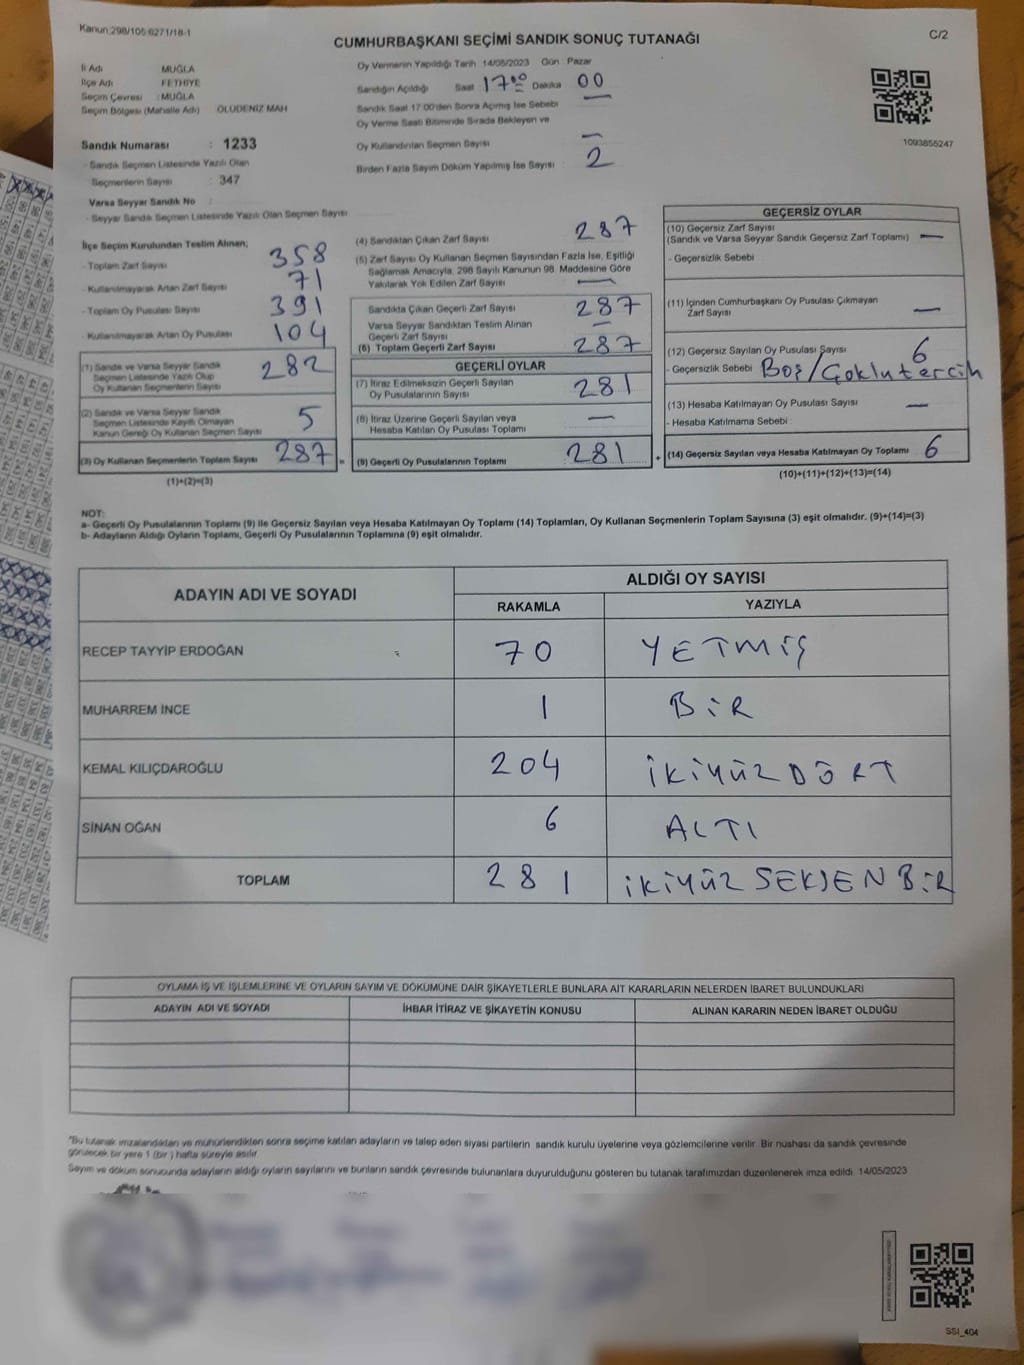 Kanun:298/105:6271/18-1
C/2
CUMHURBAŞKANI SEÇİMİ SANDIK SONUÇ TUTANAĞI
İl Adı MUĞLA
İlçe Adı FETHİYE
Seçim Çevresi : MUĞLA
Seçim Bölgesi (Mahalle Adı) ÖLÜDENİZ MAH
Sandık Numarası : 1233
- Sandık Seçmen Listesinde Yazılı Olan
Seçmenlerin Sayısı : 347
Varsa Seyyar Sandık No :
- Seyyar Sandık Seçmen Listesinde Yazılı Olan Seçmen Sayısı
Oy Vermenin Yapıldığı Tarih 14/05/2023 Gün Pazar
Sandığın Açıldığı Saat : 17 00 Dakika 00
Sandık Saat 17:00'den Sonra Açılmış İse Sebebi —
Oy Verme Saati Bitiminde Sırada Bekleyen ve
Oy Kullandırılan Seçmen Sayısı —
Birden Fazla Sayım Döküm Yapılmış İse Sayısı : 2
1093855247
İlçe Seçim Kurulundan Teslim Alınan;
- Toplam Zarf Sayısı 358
- Kullanılmayarak Artan Zarf Sayısı 71
- Toplam Oy Pusulası Sayısı 391
- Kullanılmayarak Artan Oy Pusulası 104
(1) Sandık ve Varsa Seyyar Sandık
Seçmen Listesinde Yazılı Olup
Oy Kullanan Seçmenlerin Sayısı 282
(2) Sandık ve Varsa Seyyar Sandık
Seçmen Listesinde Kayıtlı Olmayan
Kanun Gereği Oy Kullanan Seçmen Sayısı 5
(3) Oy Kullanan Seçmenlerin Toplam Sayısı 287
(1)+(2)=(3)
(4) Sandıktan Çıkan Zarf Sayısı 287
(5) Zarf Sayısı Oy Kullanan Seçmen Sayısından Fazla İse, Eşitliği
Sağlamak Amacıyla, 298 Sayılı Kanunun 98. Maddesine Göre
Yakılarak Yok Edilen Zarf Sayısı —
Sandıkta Çıkan Geçerli Zarf Sayısı 287
Varsa Seyyar Sandıktan Teslim Alınan
Geçerli Zarf Sayısı —
(6) Toplam Geçerli Zarf Sayısı 287
GEÇERLİ OYLAR
(7) İtiraz Edilmeksizin Geçerli Sayılan
Oy Pusulalarının Sayısı 281
(8) İtiraz Üzerine Geçerli Sayılan veya
Hesaba Katılan Oy Pusulası Toplamı —
= (9) Geçerli Oy Pusulalarının Toplamı 281
GEÇERSİZ OYLAR
(10) Geçersiz Zarf Sayısı
(Sandık ve Varsa Seyyar Sandık Geçersiz Zarf Toplamı) —
- Geçersizlik Sebebi
(11) İçinden Cumhurbaşkanı Oy Pusulası Çıkmayan
Zarf Sayısı —
(12) Geçersiz Sayılan Oy Pusulası Sayısı 6
- Geçersizlik Sebebi Boş/Çoklu tercih
(13) Hesaba Katılmayan Oy Pusulası Sayısı —
- Hesaba Katılmama Sebebi :
+ (14) Geçersiz Sayılan veya Hesaba Katılmayan Oy Toplamı 6
(10)+(11)+(12)+(13)=(14)
NOT:
a- Geçerli Oy Pusulalarının Toplamı (9) ile Geçersiz Sayılan veya Hesaba Katılmayan Oy Toplamı (14) Toplamları, Oy Kullanan Seçmenlerin Toplam Sayısına (3) eşit olmalıdır. (9)+(14)=(3)
b- Adayların Aldığı Oyların Toplamı, Geçerli Oy Pusulalarının Toplamına (9) eşit olmalıdır.
ADAYIN ADI VE SOYADI ALDIĞI OY SAYISI
RAKAMLA YAZIYLA
RECEP TAYYİP ERDOĞAN 70 YETMİŞ
MUHARREM İNCE 1 BİR
KEMAL KILIÇDAROĞLU 204 İKİYÜZDÖRT
SİNAN OĞAN 6 ALTI
TOPLAM 281 İKİYÜZ SEKSEN BİR
OYLAMA İŞ VE İŞLEMLERİNE VE OYLARIN SAYIM VE DÖKÜMÜNE DAİR ŞİKAYETLERLE BUNLARA AİT KARARLARIN NELERDEN İBARET BULUNDUKLARI
ADAYIN ADI VE SOYADI İHBAR İTİRAZ VE ŞİKAYETİN KONUSU ALINAN KARARIN NEDEN İBARET OLDUĞU
"Bu tutanak imzalandıktan ve mühürlendikten sonra seçime katılan adayların ve talep eden siyasi partilerin sandık kurulu üyelerine veya gözlemcilerine verilir. Bir nüshası da sandık çevresinde
görülecek bir yere 1 (bir) hafta süreyle asılır.
Sayım ve döküm sonucunda adayların aldığı oyların sayılarını ve bunların sandık çevresinde bulunanlara duyurulduğunu gösteren bu tutanak tarafımızdan düzenlenerek imza edildi. 14/05/2023
SSI_404